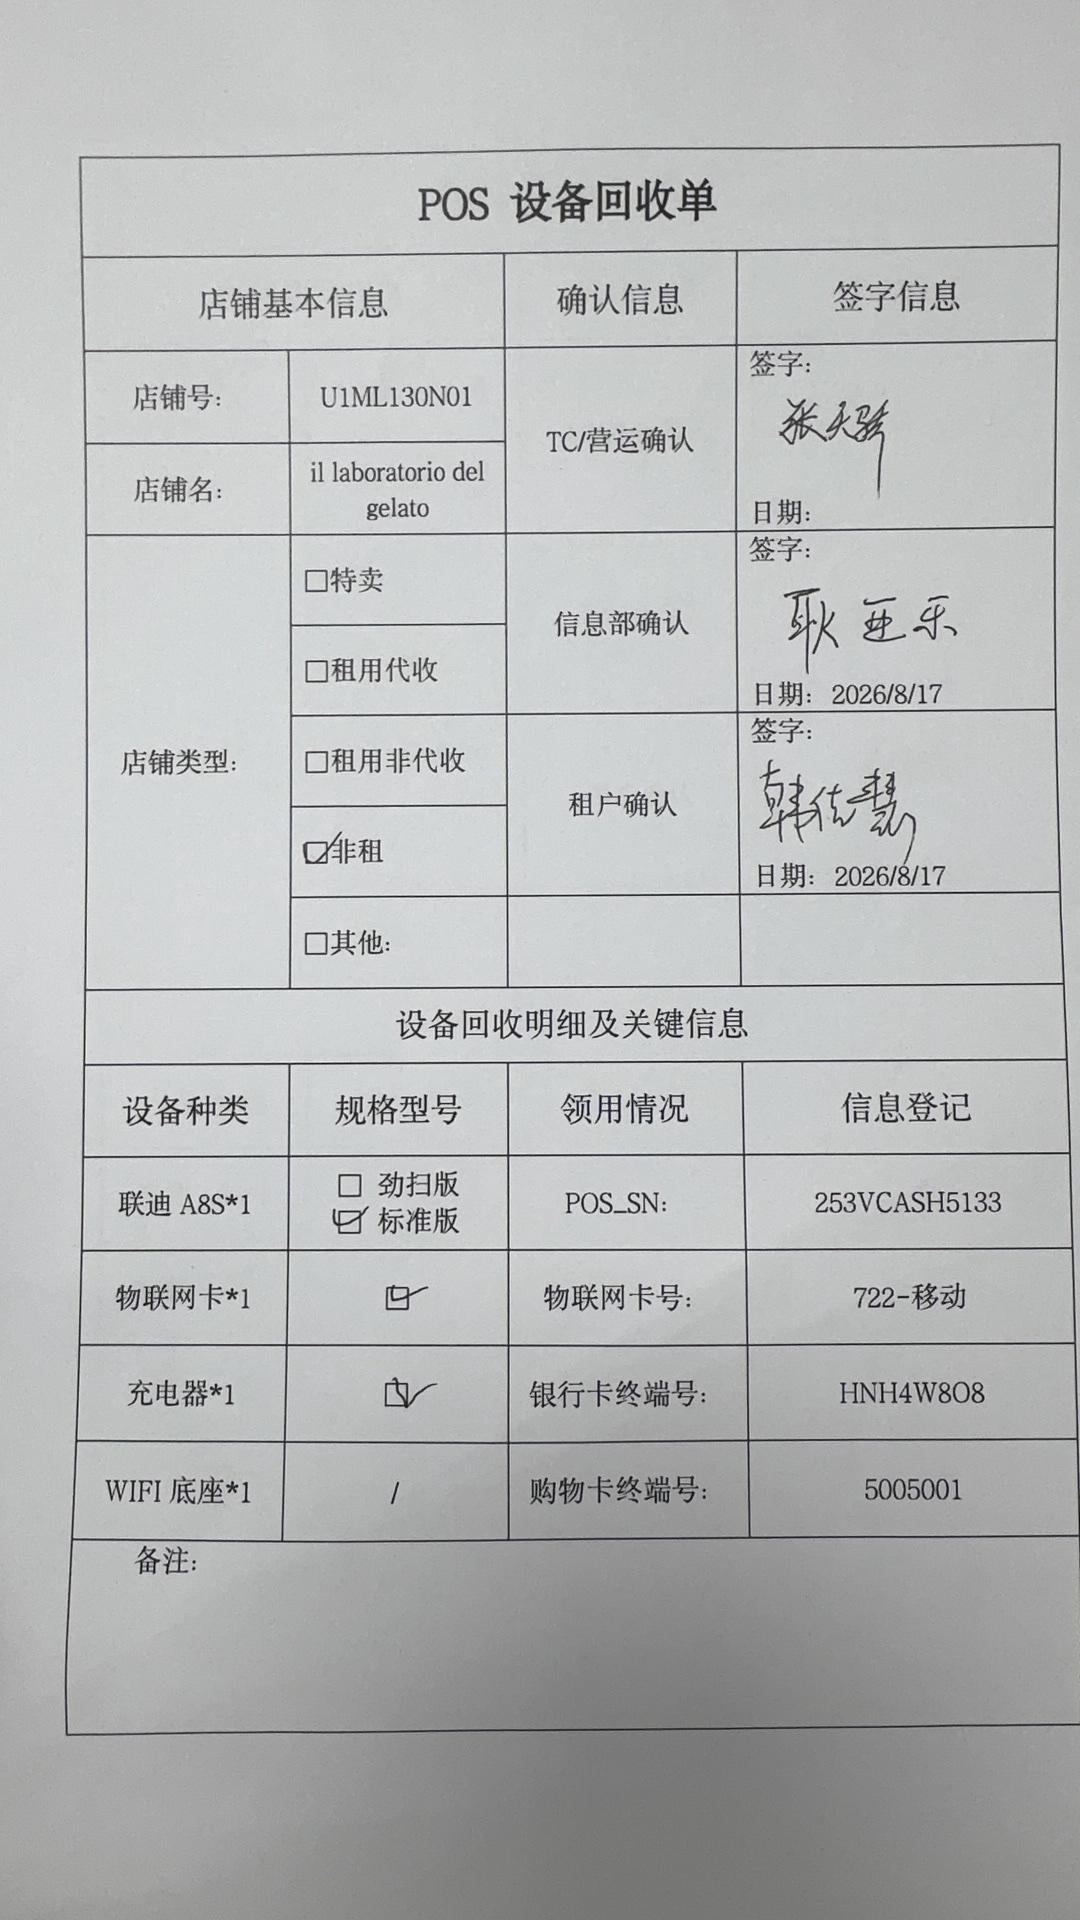 POS 设备回收单
店铺基本信息 确认信息 签字信息
店铺号: U1ML130N01 TC/营运确认 签字:
张天骄
日期:
店铺名: il laboratorio del
gelato
店铺类型: □特卖 信息部确认 签字:
耿亚乐
日期: 2026/8/17
□租用代收
□租用非代收 租户确认 签字:
韩佳慧
日期: 2026/8/17
☑非租
□其他:
设备回收明细及关键信息
设备种类 规格型号 领用情况 信息登记
联迪 A8S*1 □ 劲扫版
☑ 标准版 POS_SN: 253VCASH5133
物联网卡*1 ☑ 物联网卡号: 722-移动
充电器*1 ☑ 银行卡终端号: HNH4W8O8
WIFI 底座*1 / 购物卡终端号: 5005001
备注: